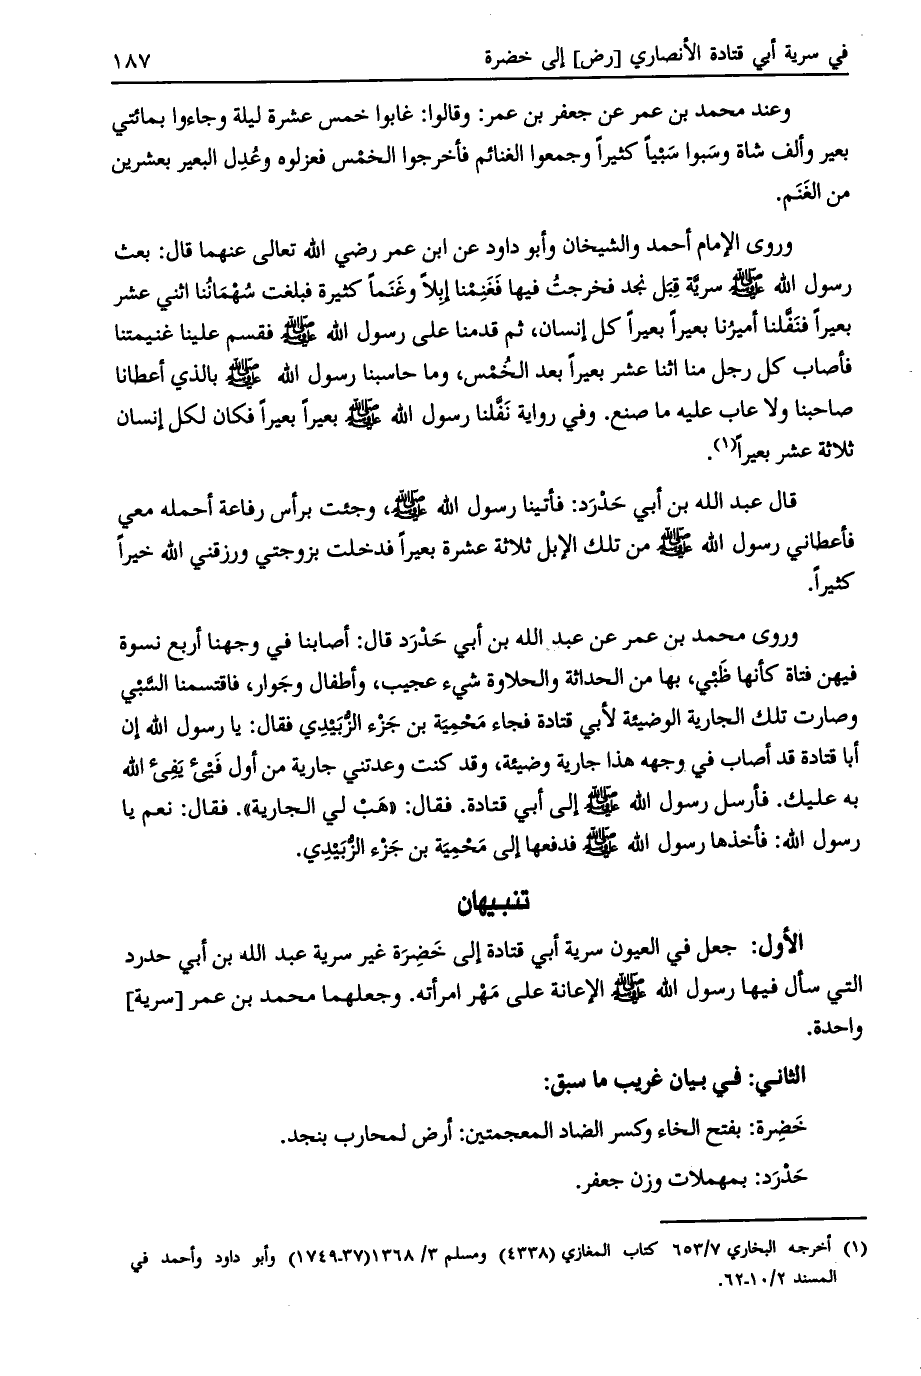 في سرية أبي قتادة الأنصاري [رض] إلى خضرة ١٨٧
وعند محمد بن عمر عن جعفر بن عمر: وقالوا: غابوا خمس عشرة ليلة وجاءوا بمائتي
بعير وألف شاة وسَبوا سَبْياً كثيراً وجمعوا الغنائم فأخرجوا الخمْس فعزلوه وعُدِل البعير بعشرين
من الغَنَم.
وروى الإمام أحمد والشيخان وأبو داود عن ابن عمر رضي الله تعالى عنهما قال: بعث
رسول الله ﷺ سريَّة قِبَل نجد فخرجتُ فيها فَغَنِمْنا إبِلاً وغَنَماً كثيرة فبلغت سُهْمَانُنا اثني عشر
بعيراً فنَفَّلنا أميرُنا بعيراً بعيراً كل إنسان، ثم قدمنا على رسول الله ﷺ فقسم علينا غنيمتنا
فأصاب كل رجل منا اثنا عشر بعيراً بعد الخُمْس، وما حاسبنا رسول الله ﷺ بالذي أعطانا
صاحبنا ولا عاب عليه ما صنع. وفي رواية نَفَّلنا رسول الله ﷺ بعيراً بعيراً فكان لكل إنسان
ثلاثة عشر بعيراً(١).
قال عبد الله بن أبي حَدْرَد: فأتينا رسول الله ﷺ، وجئت برأس رفاعة أحمله معي
فأعطاني رسول الله ﷺ من تلك الإبل ثلاثة عشرة بعيراً فدخلت بزوجتي ورزقني الله خيراً
كثيراً.
وروى محمد بن عمر عن عبد الله بن أبي حَدْرَد قال: أصابنا في وجهنا أربع نسوة
فيهن فتاة كأنها ظَبْي، بها من الحداثة والحلاوة شيء عجيب، وأطفال وجَوار، فاقتسمنا السَّبْي
وصارت تلك الجارية الوضيئة لأبي قتادة فجاء مَحْمِيَة بن جَزْء الزُّبَيْدي فقال: يا رسول الله إن
أبا قتادة قد أصاب في وجهه هذا جارية وضيئة، وقد كنت وعدتني جارية من أول فَيْىٔ يَفِىٔ الله
به عليك. فأرسل رسول الله ﷺ إلى أبي قتادة. فقال: «هَبْ لي الجارية». فقال: نعم يا
رسول الله: فأخذها رسول الله ﷺ فدفعها إلى مَحْمِيَة بن جَزْء الزُّبَيْدِي.
تنبيهان
الأول: جعل في العيون سرية أبي قتادة إلى خَضِرَة غير سرية عبد الله بن أبي حدرد
التي سأل فيها رسول الله ﷺ الإعانة على مَهْر امرأته. وجعلهما محمد بن عمر [سرية]
واحدة.
الثاني: في بيان غريب ما سبق:
خَضِرة: بفتح الخاء وكسر الضاد المعجمتين: أرض لمحارب بنجد.
حَدْرَد: بمهملات وزن جعفر.
(١) أخرجه البخاري ٦٥٣/٧ كتاب المغازي (٤٣٣٨) ومسلم ٣/ ١٣٦٨(٣٧-١٧٤٩) وأبو داود وأحمد في
المسند ١٠/٢-٦٢.